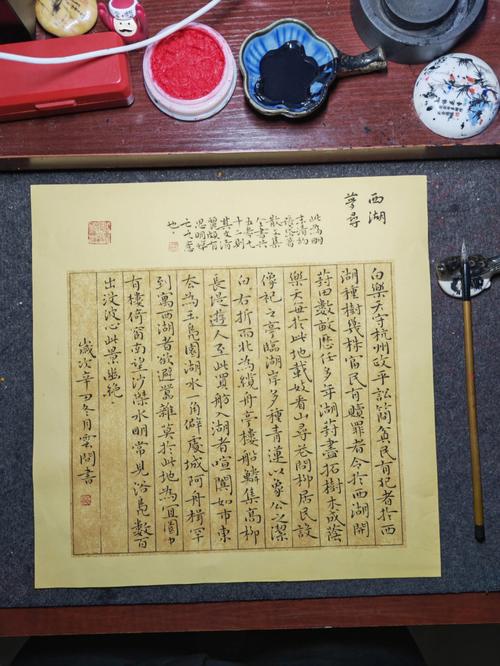 西湖
夢尋
此為明
末清初
散文集
全書共
五卷七
十二則
其文清
麗頗有
思明悼
亡之意
也
白樂天守杭州政平訟簡貧民有犯者於西
湖種樹幾株富民有贖罪者令於西湖開
葑田數畝歷任多年湖葑盡拓樹木成蔭
樂天每於此地載妓看山尋花問柳居民設
像祀之亭臨湖岸多種青蓮以象公之潔
白右折而北為纜舟亭樓船鱗集高柳
長堤遊人至此買船入湖者喧闐如市東
去為玉鳧園湖水一角僻處城阿舟楫罕
到寓西湖者欲避囂雜莫於此地為宜園中
有樓倚窗南望沙際水明常見浴鳧數百
出沒波心此景幽絕
歲次辛丑冬月雲間書